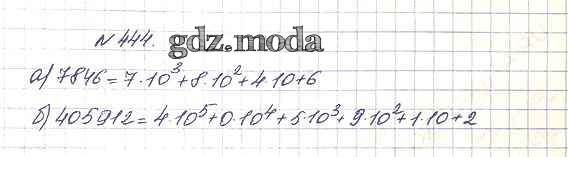 N 444. gdz.moda
а) 7846 = 7·10³+8·10²+4·10+6
б) 405912 = 4·10⁵+0·10⁴+5·10³+9·10²+1·10+2